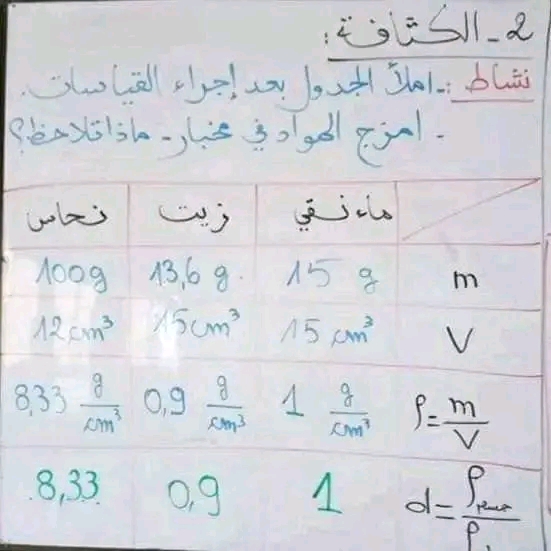 2 - الكثافة :
نشاط :- املأ الجدول بعد إجراء القياسات.
- امزج المواد في مخبار - ماذا تلاحظ؟
ماء نقي زيت نحاس
m 15 g 13,6 g 100g
V 15 cm³ 15cm³ 12cm³
ρ = m/V 1 g/cm³ 0,9 g/cm³ 8,33 g/cm³
d = ρ/ρ 1 0,9 8,33